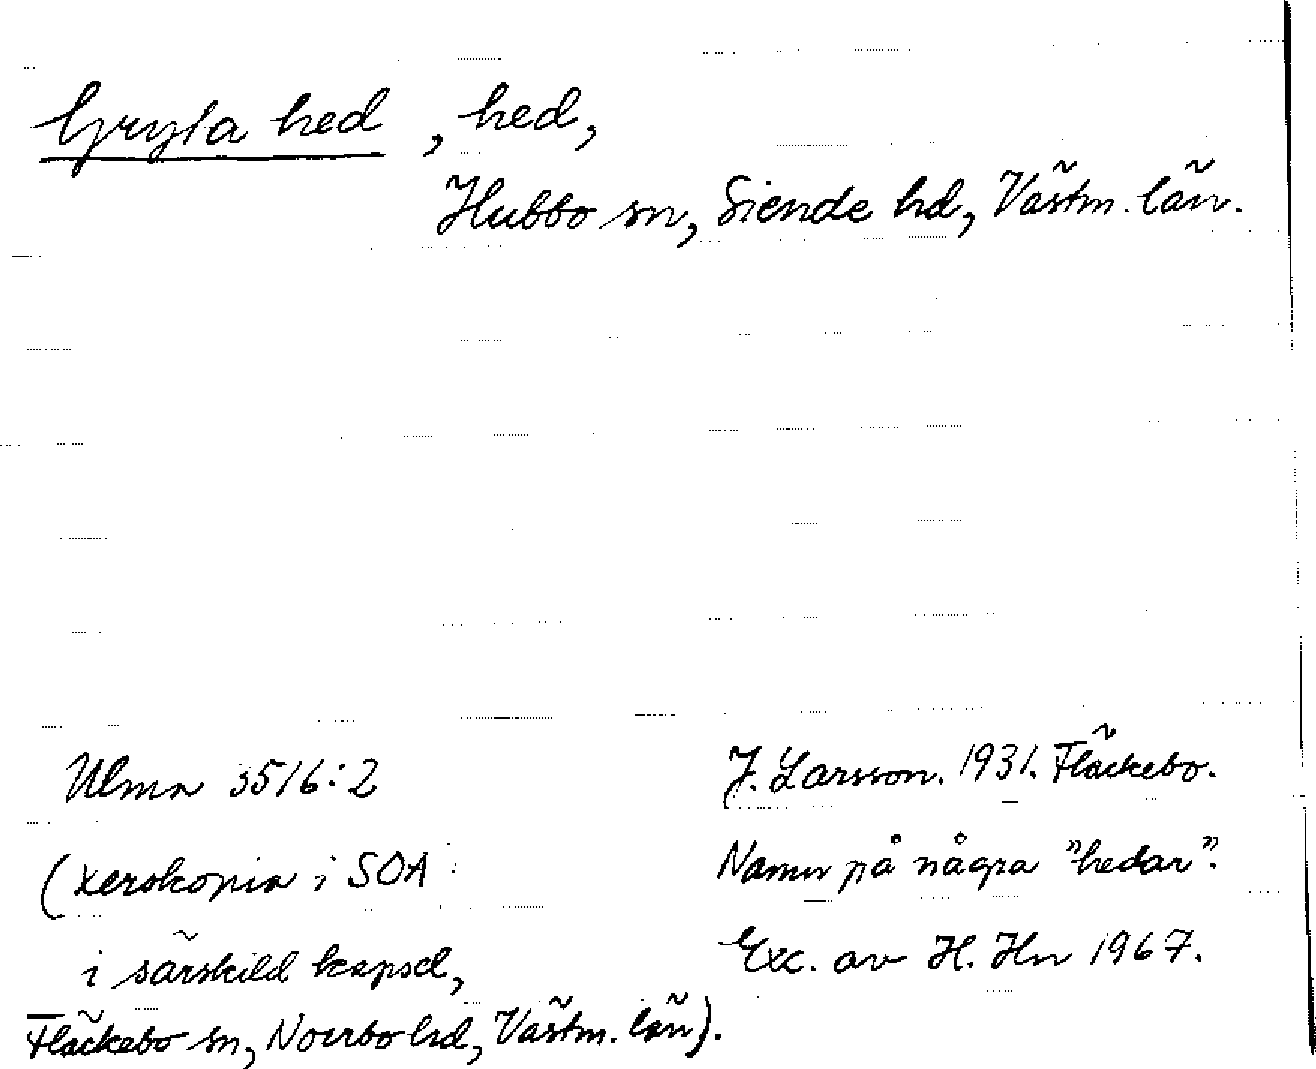 Gryta hed, hed,
Hubbo sn, Siende hd, Västm. län.
Ulma 3516:2
(xerokopia i SOA
i särskild kapsel,
Fläckebo sn, Norrbo hd, Västm. län).
J. Larsson. 1931. Fläckebo.
Namn på några "hedar".
Exc. av H. Hn 1967.